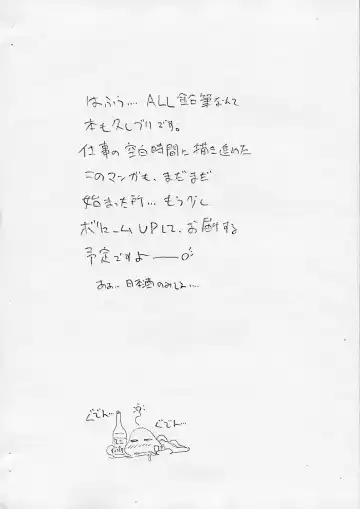 はふぅ… ALL鉛筆なんて
本も久しブリです。
仕事の空白時間に描き進めた
このマンガも、まだまだ
始まった所… もう少し
ボリュームUPして、お届けする
予定ですよ――○
あぁ…日本酒のみてぇ…
ぐでん…
ぐでん…